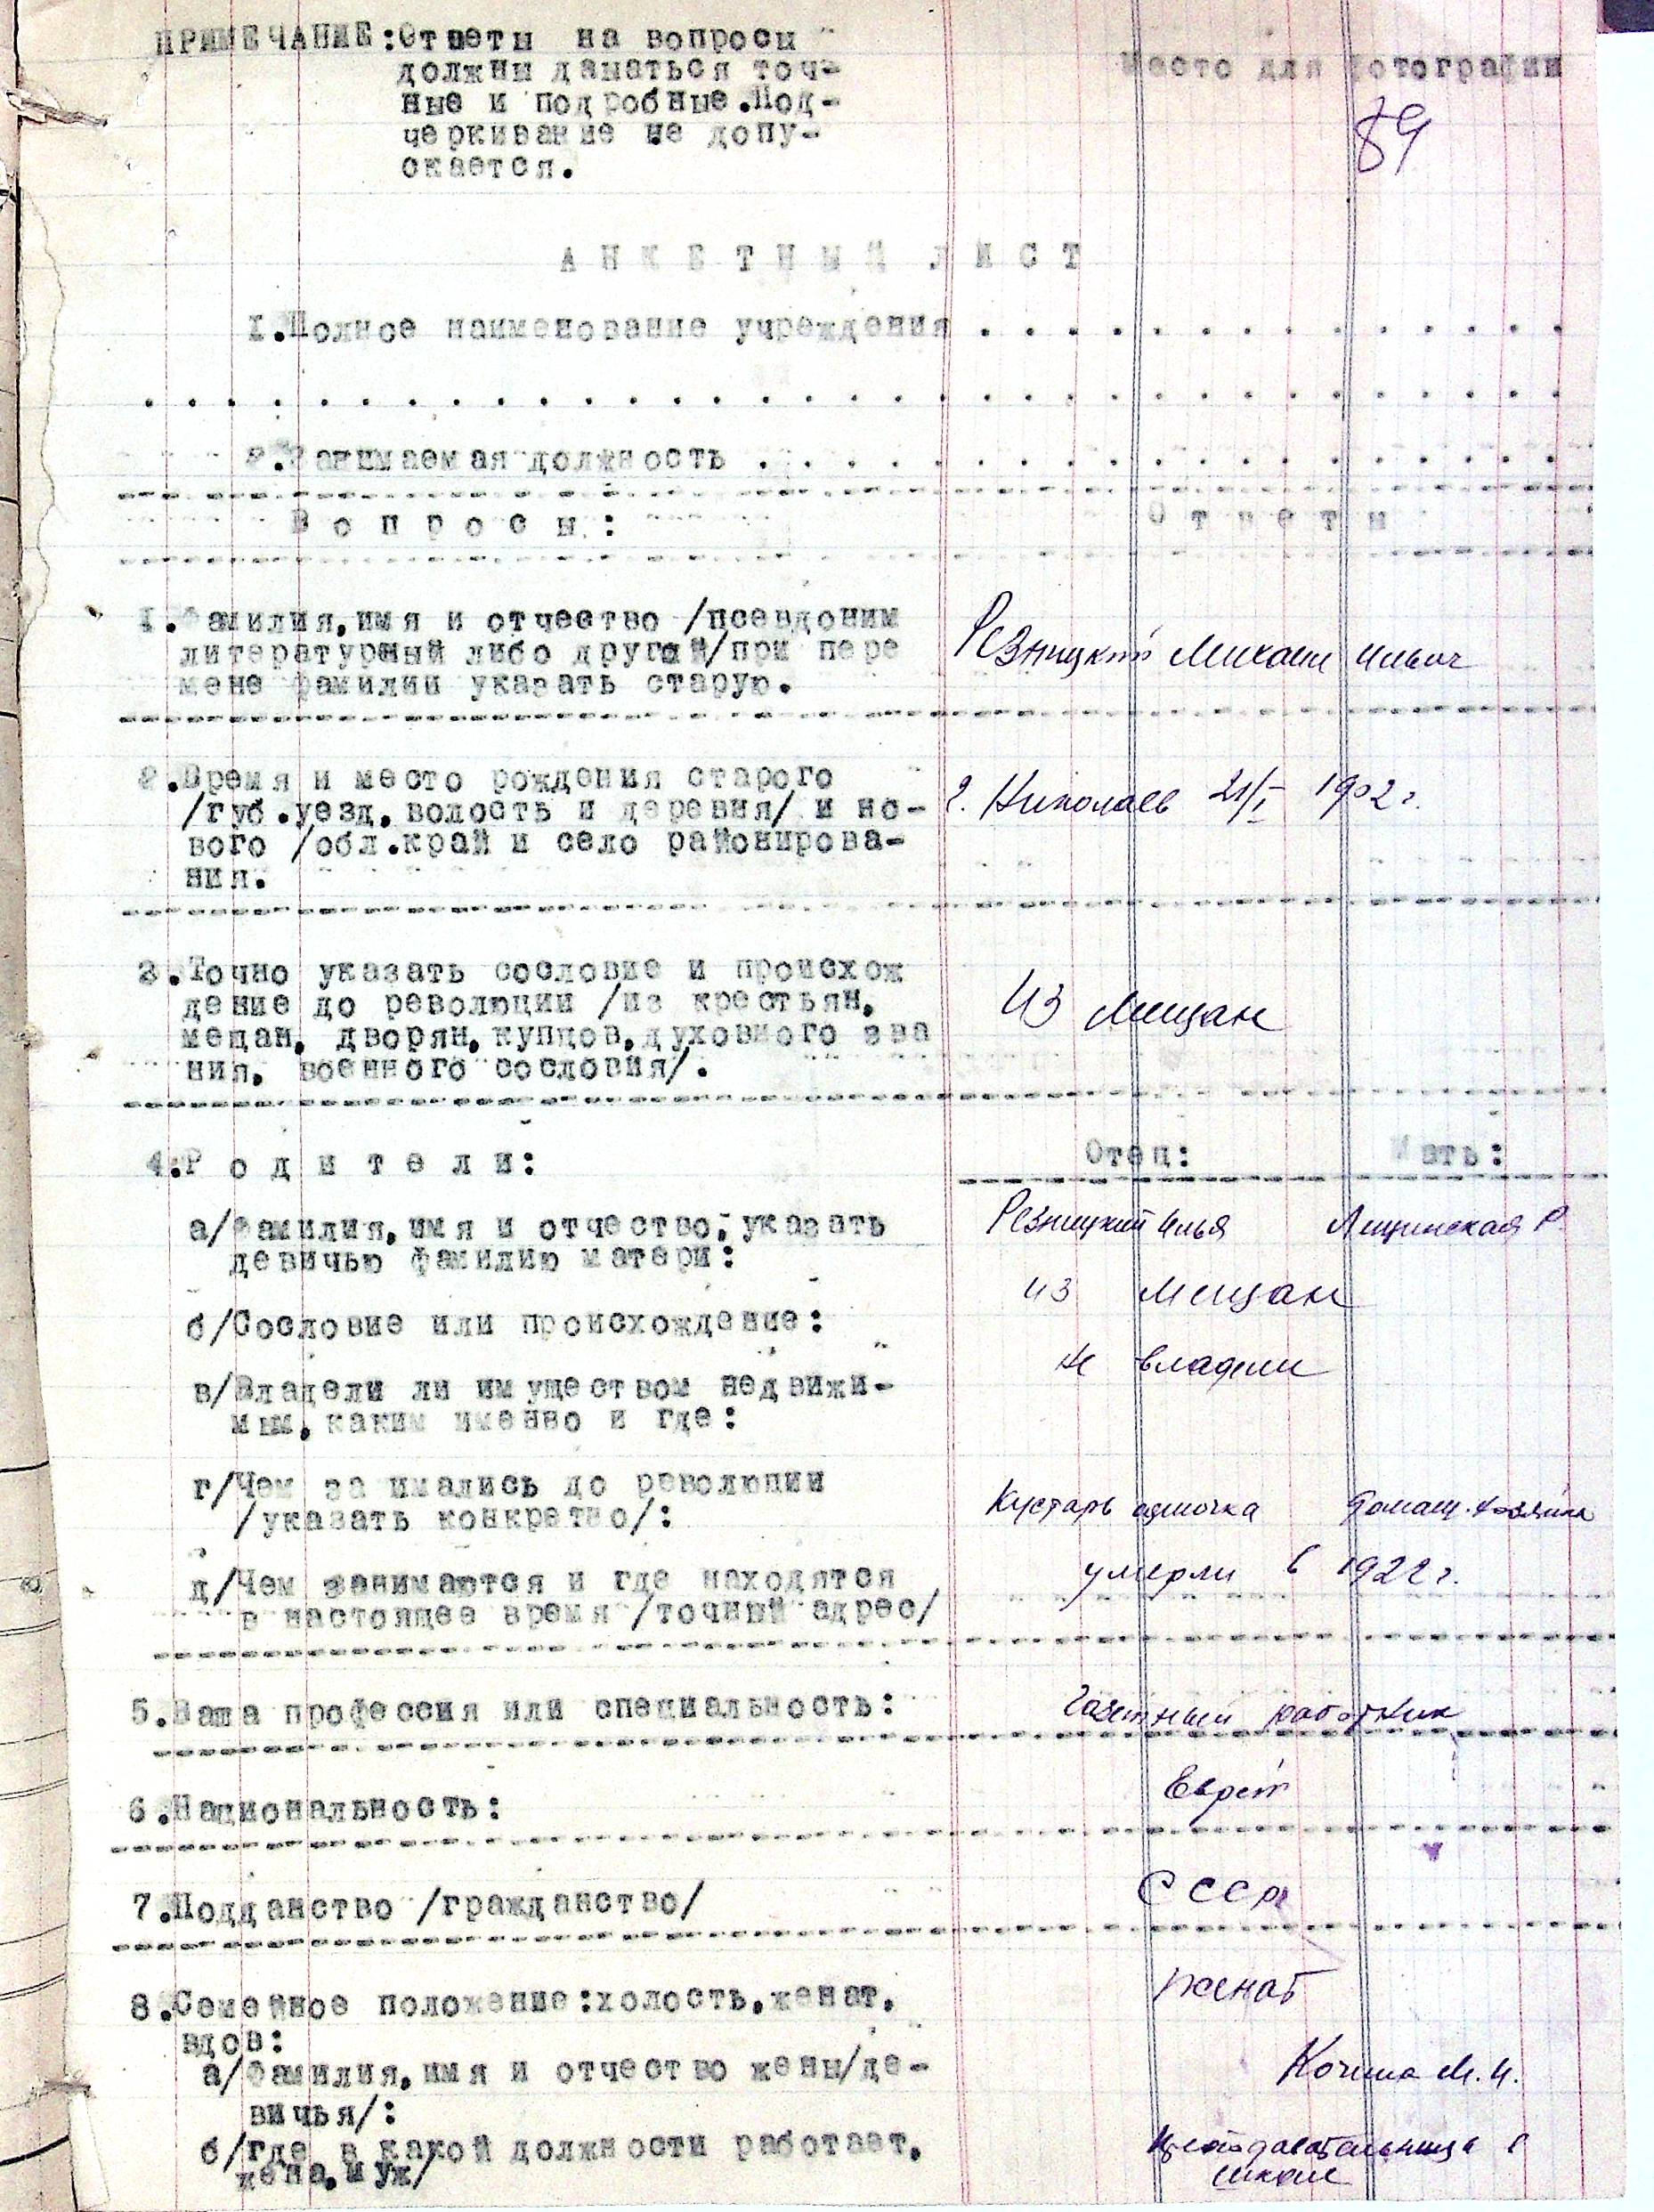 ПРИМЕЧАНИЕ: Ответы на вопросы
должны даваться точ-
ные и подробные. Под-
черкивание не допу-
скается.
Место для фотографии
89
АНКЕТНЫЙ ЛИСТ
1. Полное наименование учреждения . . . . . . . . . . . . . .
. . . . . . . . . . . . . . . . . . . . . . . . . . . . . . . . .
2. Занимаемая должность . . . . . . . . . . . . . . . . . . .
Вопросы: Ответы
1. Фамилия, имя и отчество /псевдоним
литературный либо другой/ при пере
мене фамилии указать старую.
Резницкий Михаил Ильич
2. Время и место рождения старого
/губ. уезд, волость и деревня/ и но-
вого /обл. край и село районирова-
ния.
г. Николаев 21/I 1902 г.
3. Точно указать сословие и происхож
дение до революции /из крестьян,
мещан, дворян, купцов, духовного зва
ния, военного сословия/.
Из мещан
4. Родители: Отец: Мать:
а/ Фамилия, имя и отчество, указать
девичью фамилию матери:
Резницкий Илья Лещинская Р.
б/ Сословие или происхождение:
из мещан
в/ Владели ли имуществом недвижи-
мым, каким именно и где:
не владели
г/ Чем занимались до революции
/указать конкретно/:
Кустарь одиночка домащ. хозяйка
д/ Чем занимаются и где находятся
в настоящее время /точный адрес/
умерли в 1922 г.
5. Ваша профессия или специальность: Газетный работник
6. Национальность: Еврей
7. Подданство /гражданство/ СССР
8. Семейное положение: холость, женат,
вдов:
женат
а/ Фамилия, имя и отчество жены/де-
вичья/:
М. И.
б/ где в какой должности работает,
жена, муж/
преподавательница в
школе